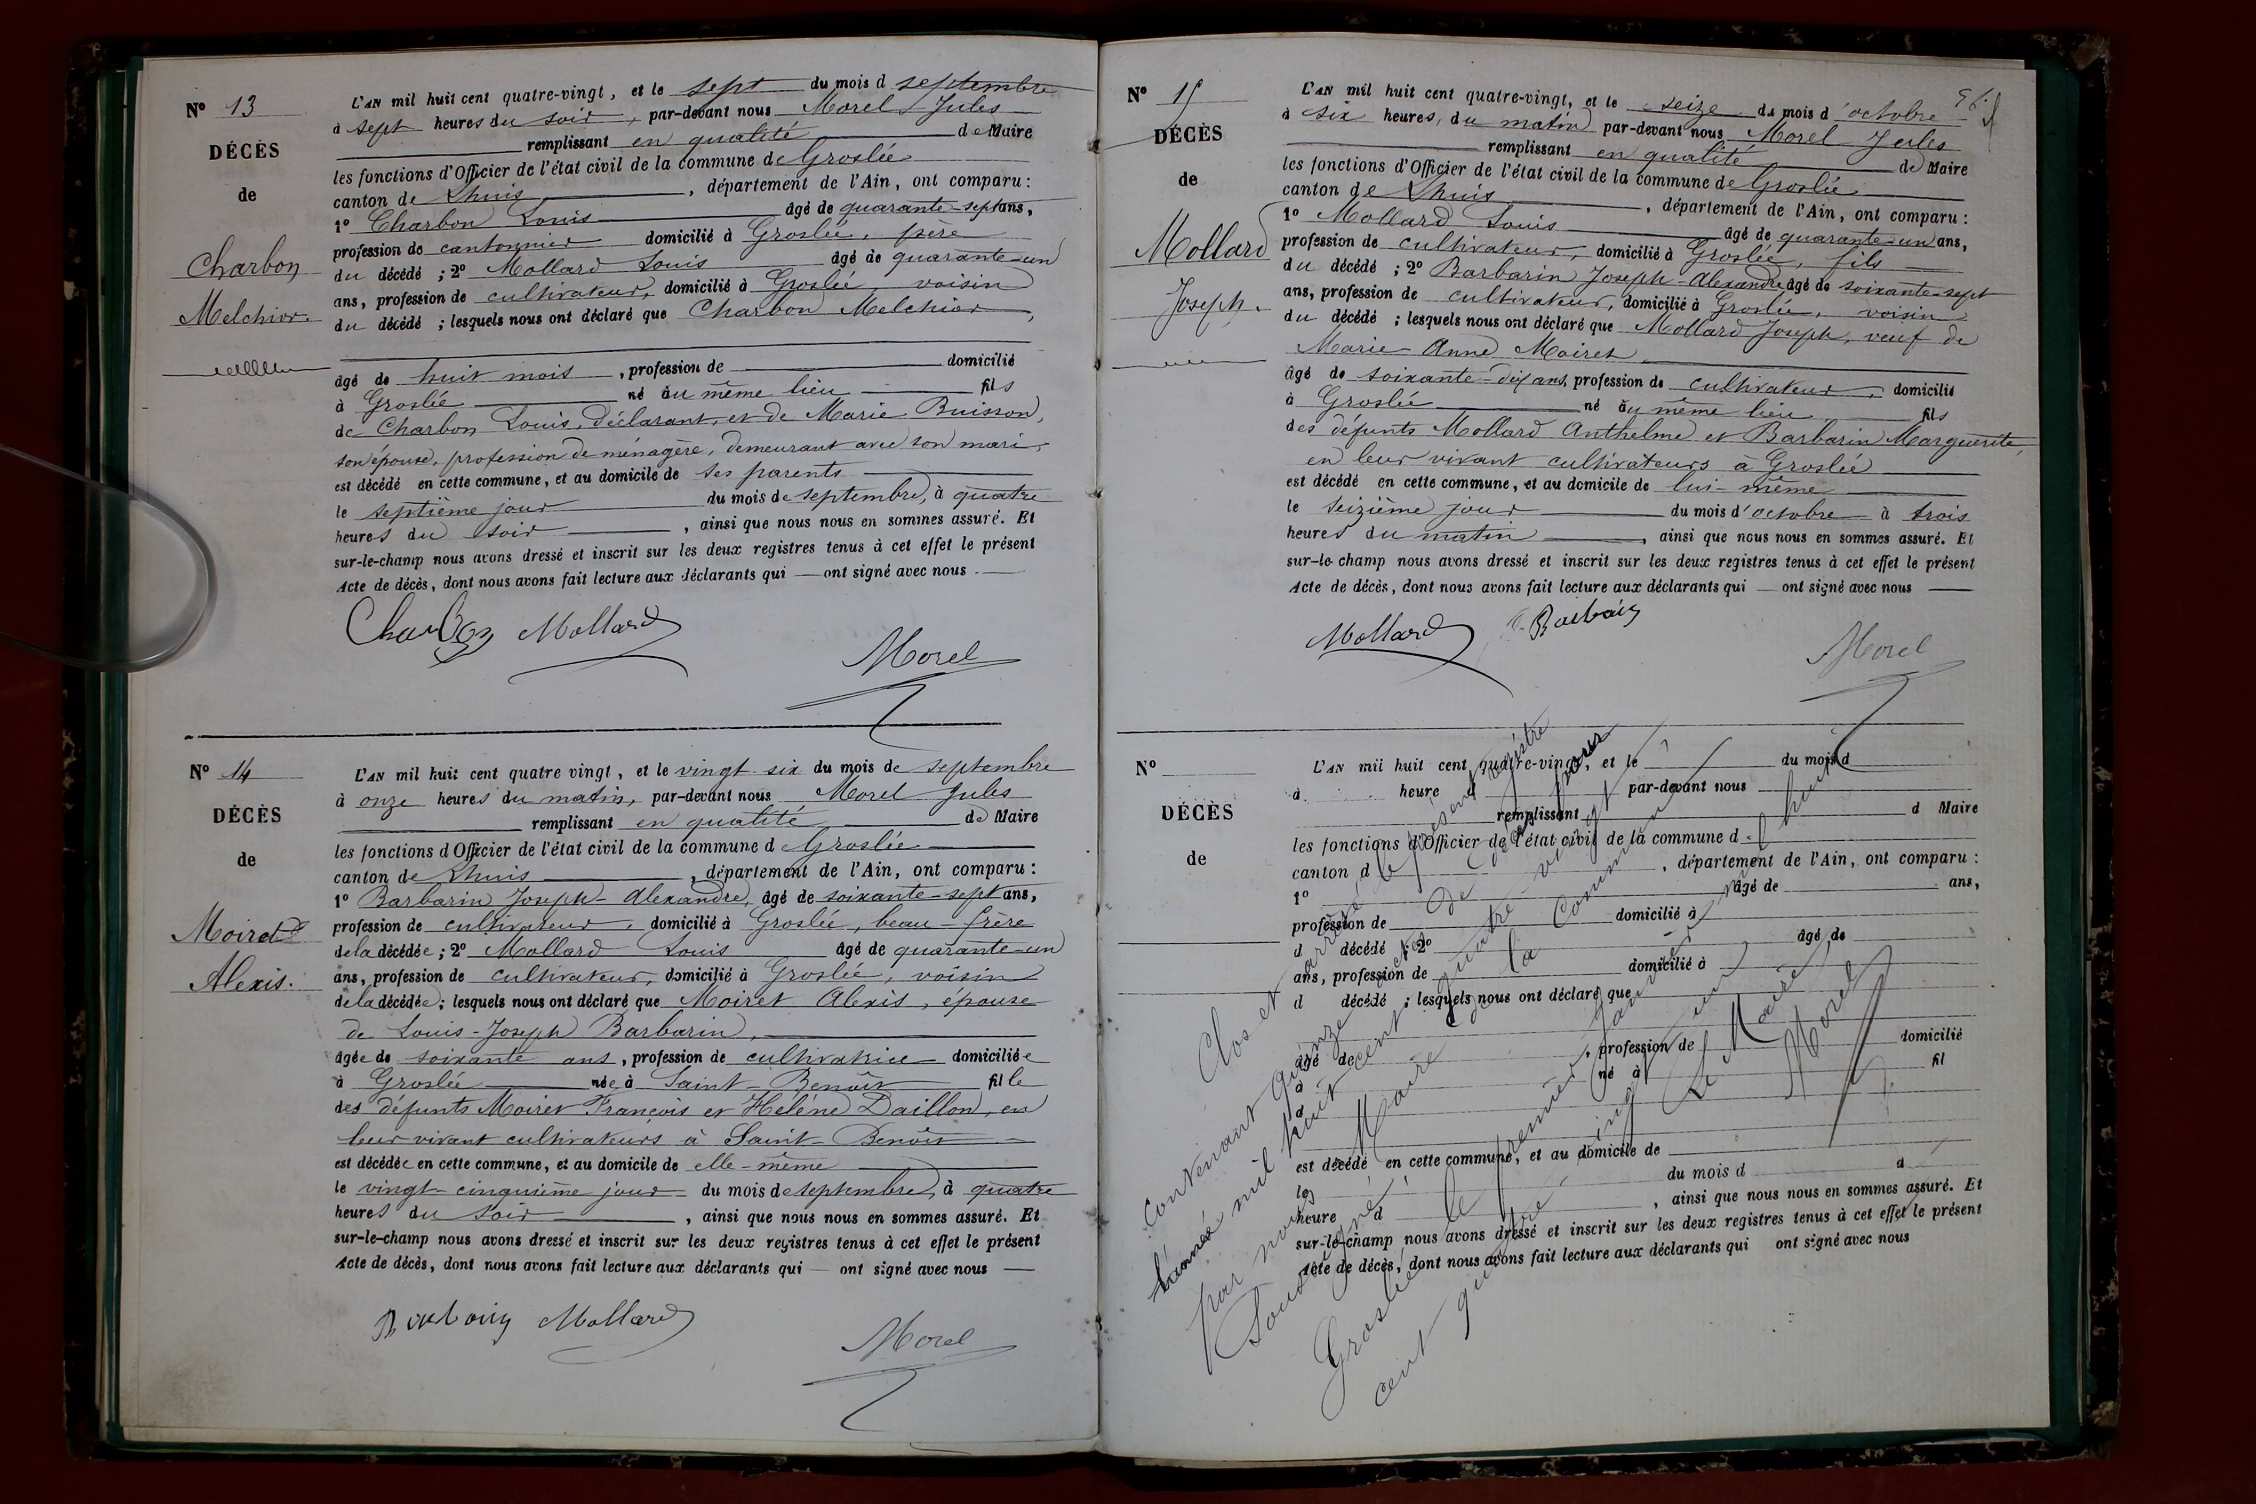 N° 13
DÉCÈS
de
Charbon
Melchior.
L'AN mil huit cent quatre-vingt, et le sept du mois d septembre
à sept heures du soir, par-devant nous Morel Jules
remplissant en qualité de Maire
les fonctions d'Officier de l'état civil de la commune de Groslée
canton de Lhuis, département de l'Ain, ont comparu :
1° Charbon Louis âgé de quarante-sept ans,
profession de cantonnier domicilié à Groslée, père
du décédé ; 2° Mollard Louis âgé de quarante-un
ans, profession de cultivateur, domicilié à Groslée, voisin
du décédé ; lesquels nous ont déclaré que Charbon Melchior,
âgé de huit mois, profession de domicilié
à Groslée né au même lieu fils
de Charbon Louis, déclarant, et de Marie Buisson,
son épouse, profession de ménagère, demeurant avec son mari,
est décédé en cette commune, et au domicile de ses parents
le septième jour du mois de septembre, à quatre
heures du soir, ainsi que nous nous en sommes assuré. Et
sur-le-champ nous avons dressé et inscrit sur les deux registres tenus à cet effet le présent
Acte de décès, dont nous avons fait lecture aux déclarants qui — ont signé avec nous.
Charbon Mollard
Morel
N° 14
DÉCÈS
de
Moiret
Alexis.
L'AN mil huit cent quatre vingt, et le vingt-six du mois de septembre
à onze heures du matin, par-devant nous Morel Jules
remplissant en qualité de Maire
les fonctions d'Officier de l'état civil de la commune d Groslée
canton de Lhuis, département de l'Ain, ont comparu :
1° Barbarin Joseph-Alexandre, âgé de soixante-sept ans,
profession de cultivateur, domicilié à Groslée, beau-frère
de la décédée ; 2° Mollard Louis âgé de quarante-un
ans, profession de cultivateur, domicilié à Groslée, voisin
de la décédée ; lesquels nous ont déclaré que Moiret Alexis, épouse
de Louis-Joseph Barbarin,
âgée de soixante ans, profession de cultivatrice domiciliée
à Groslée née à Saint-Benoît fille
des défunts Moiret François et Hélène Daillon, en
leur vivant cultivateurs à Saint-Benoît
est décédée en cette commune, et au domicile de elle-même
le vingt-cinquième jour du mois de septembre, à quatre
heures du soir, ainsi que nous nous en sommes assuré. Et
sur-le-champ nous avons dressé et inscrit sur les deux registres tenus à cet effet le présent
Acte de décès, dont nous avons fait lecture aux déclarants qui — ont signé avec nous —
Barbarin Mollard
Morel
N° 15
DÉCÈS
de
Mollard
Joseph.
L'AN mil huit cent quatre-vingt, et le seize du mois d'octobre
à six heures, du matin par-devant nous Morel Jules
remplissant en qualité de Maire
les fonctions d'Officier de l'état civil de la commune de Groslée
canton de Lhuis, département de l'Ain, ont comparu :
1° Mollard Louis âgé de quarante-un ans,
profession de cultivateur, domicilié à Groslée, fils
du décédé ; 2° Barbarin Joseph-Alexandre âgé de soixante-sept
ans, profession de cultivateur, domicilié à Groslée, voisin
du décédé ; lesquels nous ont déclaré que Mollard Joseph, veuf de
Marie Anne Moiret
âgé de soixante-dix ans, profession de cultivateur, domicilié
à Groslée né au même lieu fils
des défunts Mollard Anthelme et Barbarin Marguerite,
en leur vivant cultivateurs à Groslée
est décédé en cette commune, et au domicile de lui-même
le seizième jour du mois d'octobre à trois
heures du matin, ainsi que nous nous en sommes assuré. Et
sur-le-champ nous avons dressé et inscrit sur les deux registres tenus à cet effet le présent
Acte de décès, dont nous avons fait lecture aux déclarants qui — ont signé avec nous —
Mollard Barbarin
Morel
N°
DÉCÈS
de
L'AN mil huit cent quatre-vingt, et le du mois d
à heure d par-devant nous
remplissant d Maire
les fonctions d'Officier de l'état civil de la commune d
canton d, département de l'Ain, ont comparu :
1° âgé de ans,
profession de domicilié à
d décédé ; 2° âgé de
ans, profession de domicilié à
d décédé ; lesquels nous ont déclaré que
âgé de, profession de domicilié
à né à fil
d
est décédé en cette commune, et au domicile de
le du mois d à
heure d, ainsi que nous nous en sommes assuré. Et
sur-le-champ nous avons dressé et inscrit sur les deux registres tenus à cet effet le présent
Acte de décès, dont nous avons fait lecture aux déclarants qui ont signé avec nous
Clos et arrêté le présent registre
contenant quinze actes de décès pour
l'année mil huit cent quatre-vingt
par nous Maire de la commune
soussigné,
Groslée le premier janvier mil huit
cent quatre vingt un
Le Maire
Morel